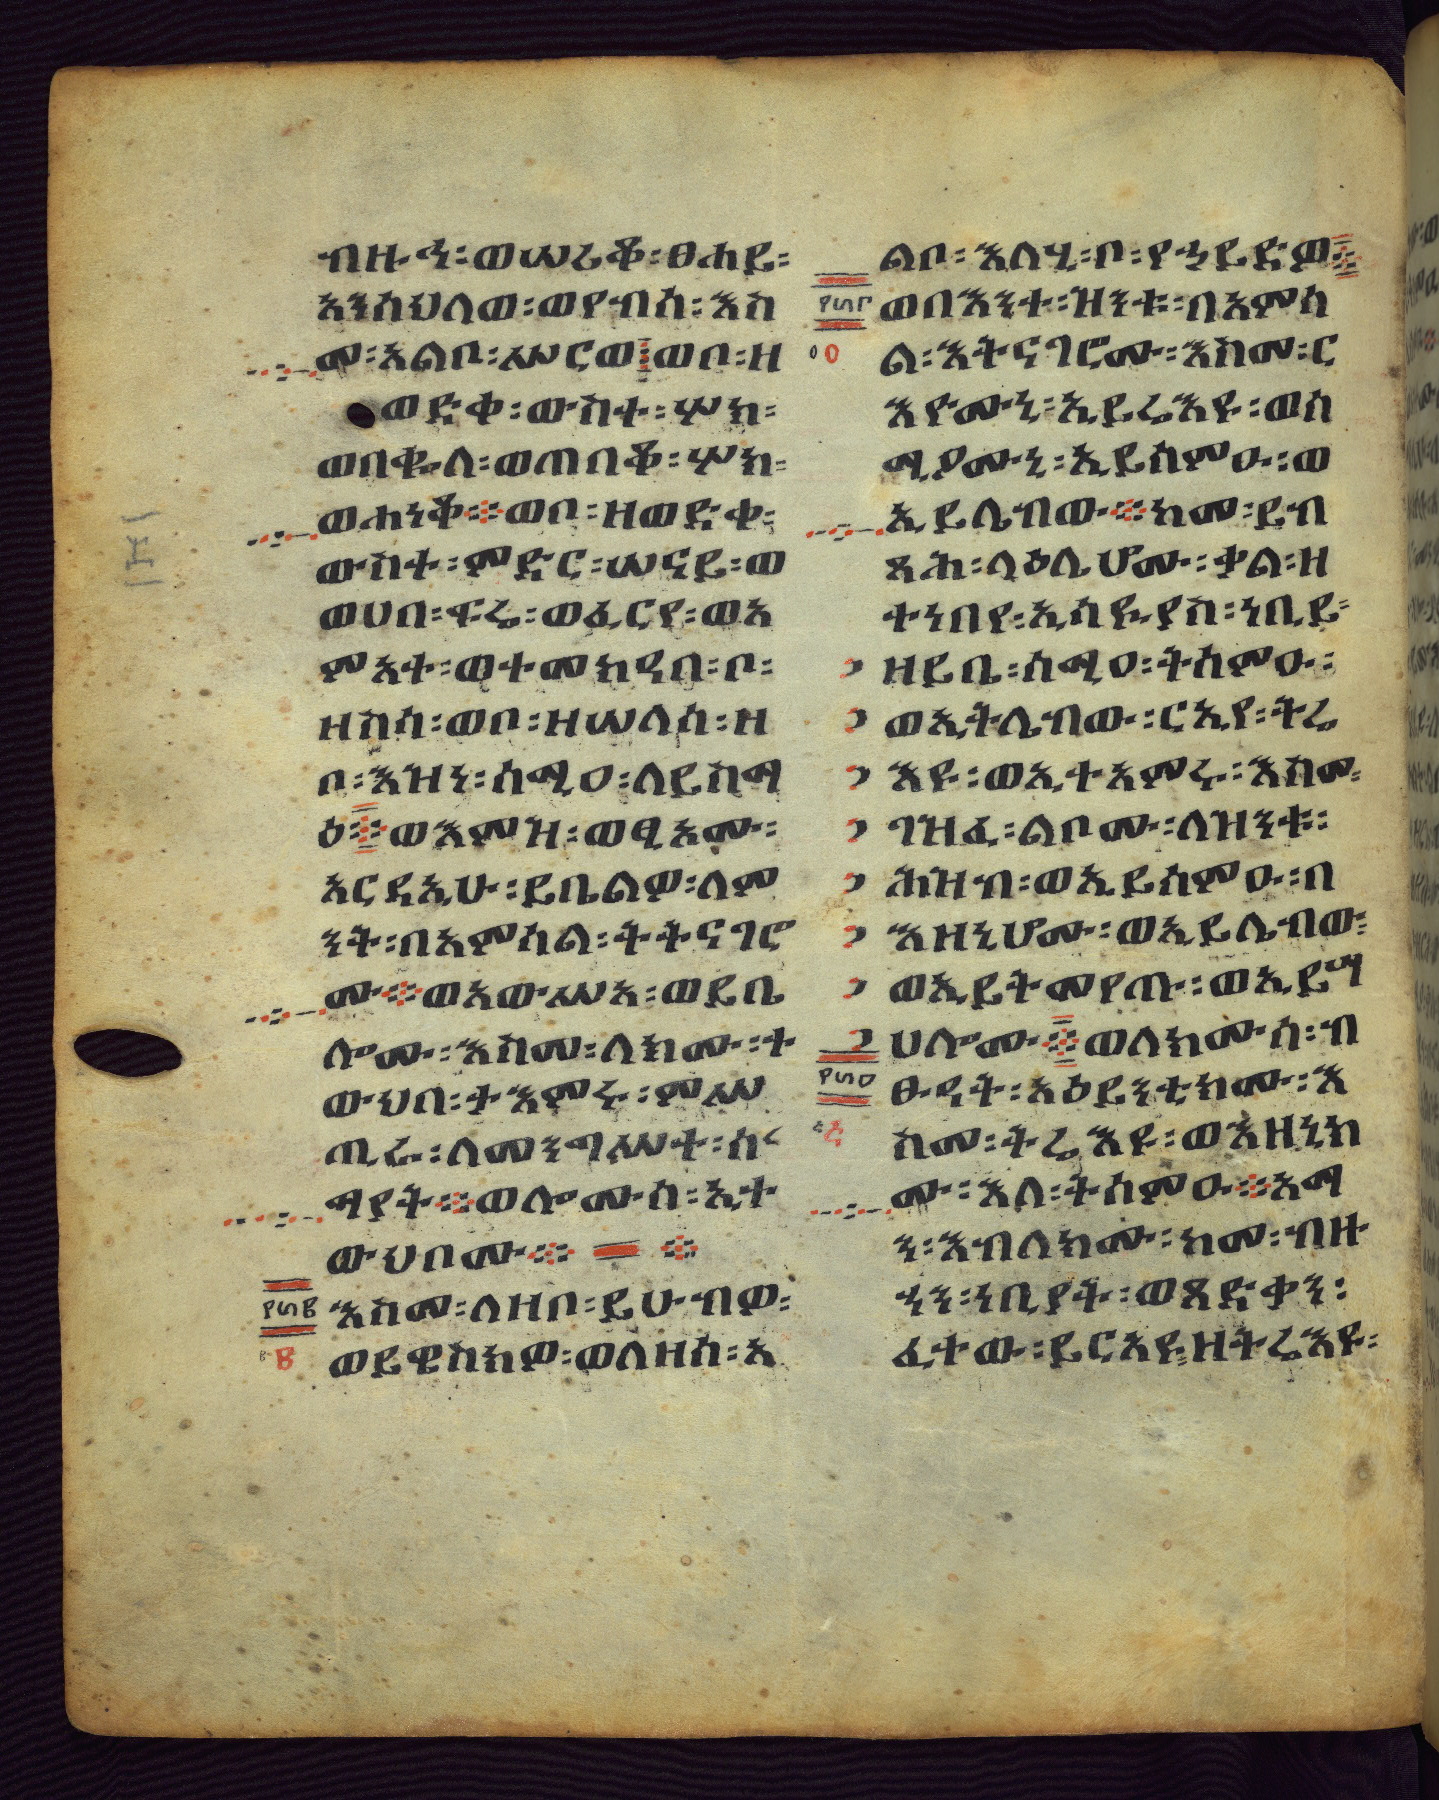 ብዙኅ፡ወሠረቆ፡ፀሐይ፡
አንስሀለወ፡ወየብሰ፡እስ
መ፡አልቦ፡ሥርወ፡ወቦ፡ዘ
ወድቀ፡ውስተ፡ሦክ፡
ወበቈለ፡ወጠበቆ፡ሦክ፡
ወሐነቆ፡ወቦ፡ዘወድቀ፡
ውስተ፡ምድር፡ሠናይ፡ወ
ወሀበ፡ፍሬ፡ወፈርየ፡ወአ
ምአተ፡ወተመክዓበ፡ቦ፡
ዘስሳ፡ወቦ፡ዘሠላሳ፡ዘ
ቦ፡እዝነ፡ሰሚዐ፡ለይስማ
ዕ፡ወእምዝ፡ወፂአሙ፡
አርዳኢሁ፡ይቤልዎ፡ለም
ንት፡በአምሳል፡ትትናገሮ
ሙ፡ወአውሥአ፡ወይቤ
ሎሙ፡እስመ፡ለክሙ፡ተ
ውህበ፡ተእምሩ፡ምሥ
ጢራ፡ለመንግሥተ፡ሰ
ማያት፡ወሎሙሰ፡ኢተ
ውህቦሙ፡
፻፴፪ እስመ፡ለዘቦ፡ይሁብዎ፡
፪ ወይዌስክዎ፡ወለዘሰ፡አ
ልቦ፡እለሂ፡ቦ፡የኀይድዎ፡
፻፴፫ ወበእንተ፡ዝንቱ፡በአምሳ
ል፡እትናገሮሙ፡እስመ፡ር
እዮሙኒ፡ኢይሬእዩ፡ወሰ
ሚዖሙኒ፡ኢይሰምዑ፡ወ
ኢይሌብው፡ከመ፡ይብ
ጻሕ፡ላዕሌሆሙ፡ቃል፡ዘ
ተነበየ፡ኢሳይያስ፡ነቢይ፡
ዘይቤ፡ሰሚዐ፡ትሰምዑ፡
ወኢትሌብው፡ርኢየ፡ትሬ
እዩ፡ወኢተአምሩ፡እስመ፡
ገዝፈ፡ልቦሙ፡ለዝንቱ፡
ሕዝብ፡ወኢይሰምዑ፡በ
እዘኒሆሙ፡ወኢይሌብው፡
ወኢይትመየጡ፡ወኢይሣ
ሀሎሙ፡ወለክሙሰ፡ብ
፻፴፬ ፁዓት፡አዕይንቲክሙ፡እ
ስመ፡ትሬእዩ፡ወእዘኒክ
ሙ፡እለ፡ትሰምዑ፡አማ
ን፡እብለክሙ፡ከመ፡ብዙ
ኃን፡ነቢያት፡ወጻድቃን፡
ፈተው፡ይርአዩ፡ዘትሬእዩ፡